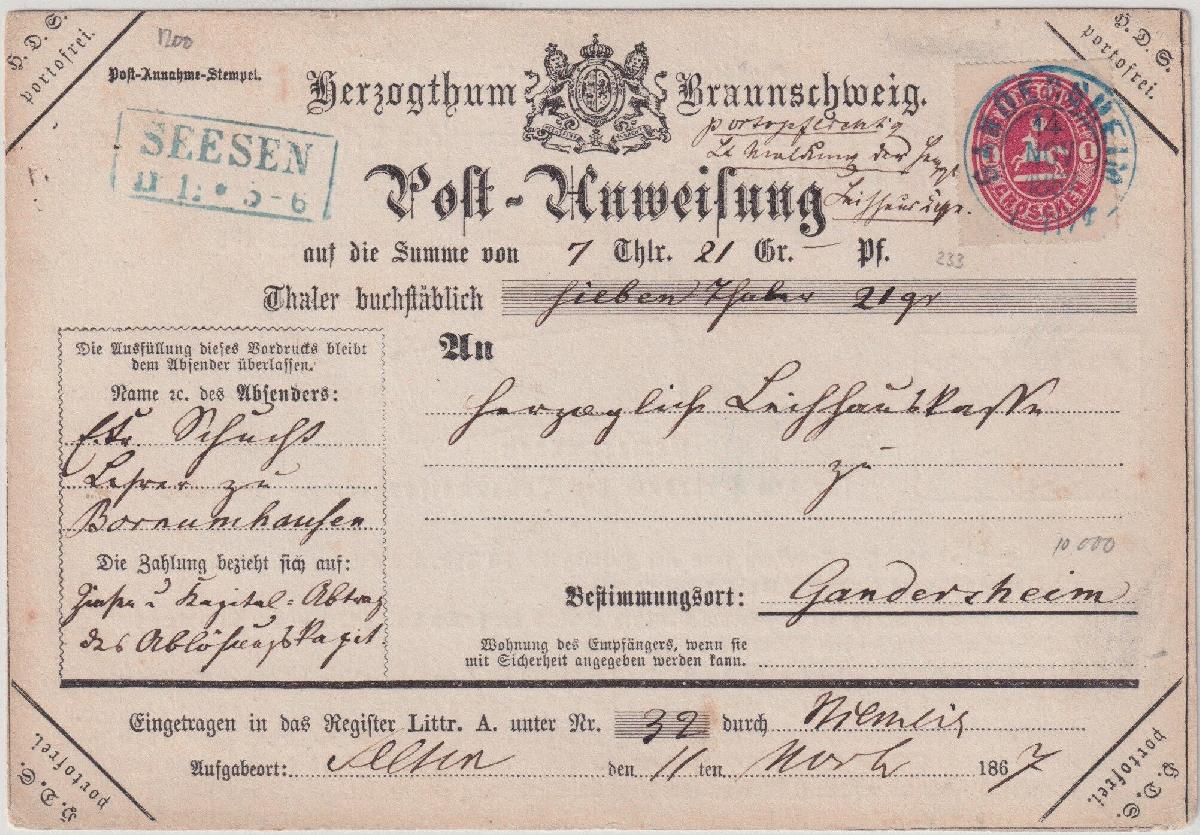 H. D. S.
portofrei.
H. D. S.
portofrei.
1200
Post-Annahme-Stempel.
Herzogthum Braunschweig.
SEESEN
11 1: * 5-6
portopflichtig
Lt Meldung der Herzgl
Leihhaus
GANDERSHEIM
14
1 GROSCHEN 1
Post-Anweisung
auf die Summe von 7 Thlr. 21 Gr. — Pf.
233
Thaler buchstäblich sieben Thaler 21 gr
Die Ausfüllung dieses Vordrucks bleibt
dem Absender überlassen.
Name ꝛc. des Absenders:
Schucht
Lehrer zu
Bornumhausen
Die Zahlung bezieht sich auf:
Zinsen u Kapital-Abtrag
des Ablösungskapit
An
Herzogliche Leihhauskasse
zu
10 000
Bestimmungsort: Gandersheim
Wohnung des Empfängers, wenn sie
mit Sicherheit angegeben werden kann.
Eingetragen in das Register Littr. A. unter Nr. 32 durch
Aufgabeort: den 11 ten 1867
H. D. S.
portofrei.
H. D. S.
portofrei.